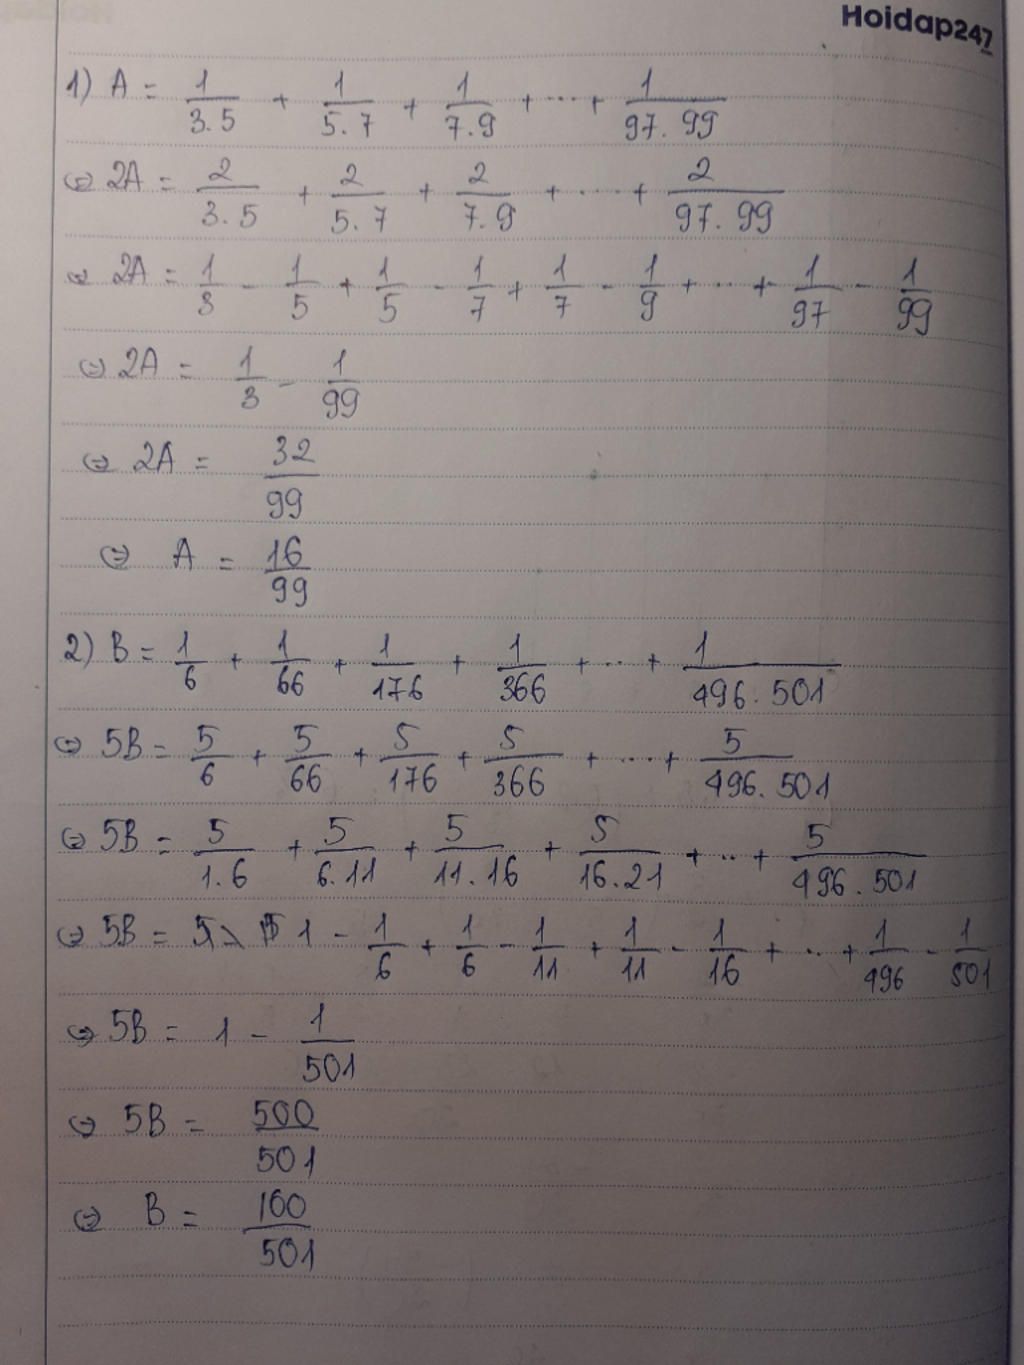 Hoidap247
1) A = 1/3.5 + 1/5.7 + 1/7.9 + ... + 1/97.99
⇔ 2A = 2/3.5 + 2/5.7 + 2/7.9 + .... + 2/97.99
⇔ 2A = 1/3 - 1/5 + 1/5 - 1/7 + 1/7 - 1/9 + ... + 1/97 - 1/99
⇔ 2A = 1/3 - 1/99
⇔ 2A = 32/99
⇔ A = 16/99
2) B = 1/6 + 1/66 + 1/176 + 1/366 + ... + 1/496.501
⇔ 5B = 5/6 + 5/66 + 5/176 + 5/366 + .... + 5/496.501
⇔ 5B = 5/1.6 + 5/6.11 + 5/11.16 + 5/16.21 + ... + 5/496.501
⇔ 5B = 1 - 1/6 + 1/6 - 1/11 + 1/11 - 1/16 + ... + 1/496 - 1/501
⇔ 5B = 1 - 1/501
⇔ 5B = 500/501
⇔ B = 100/501